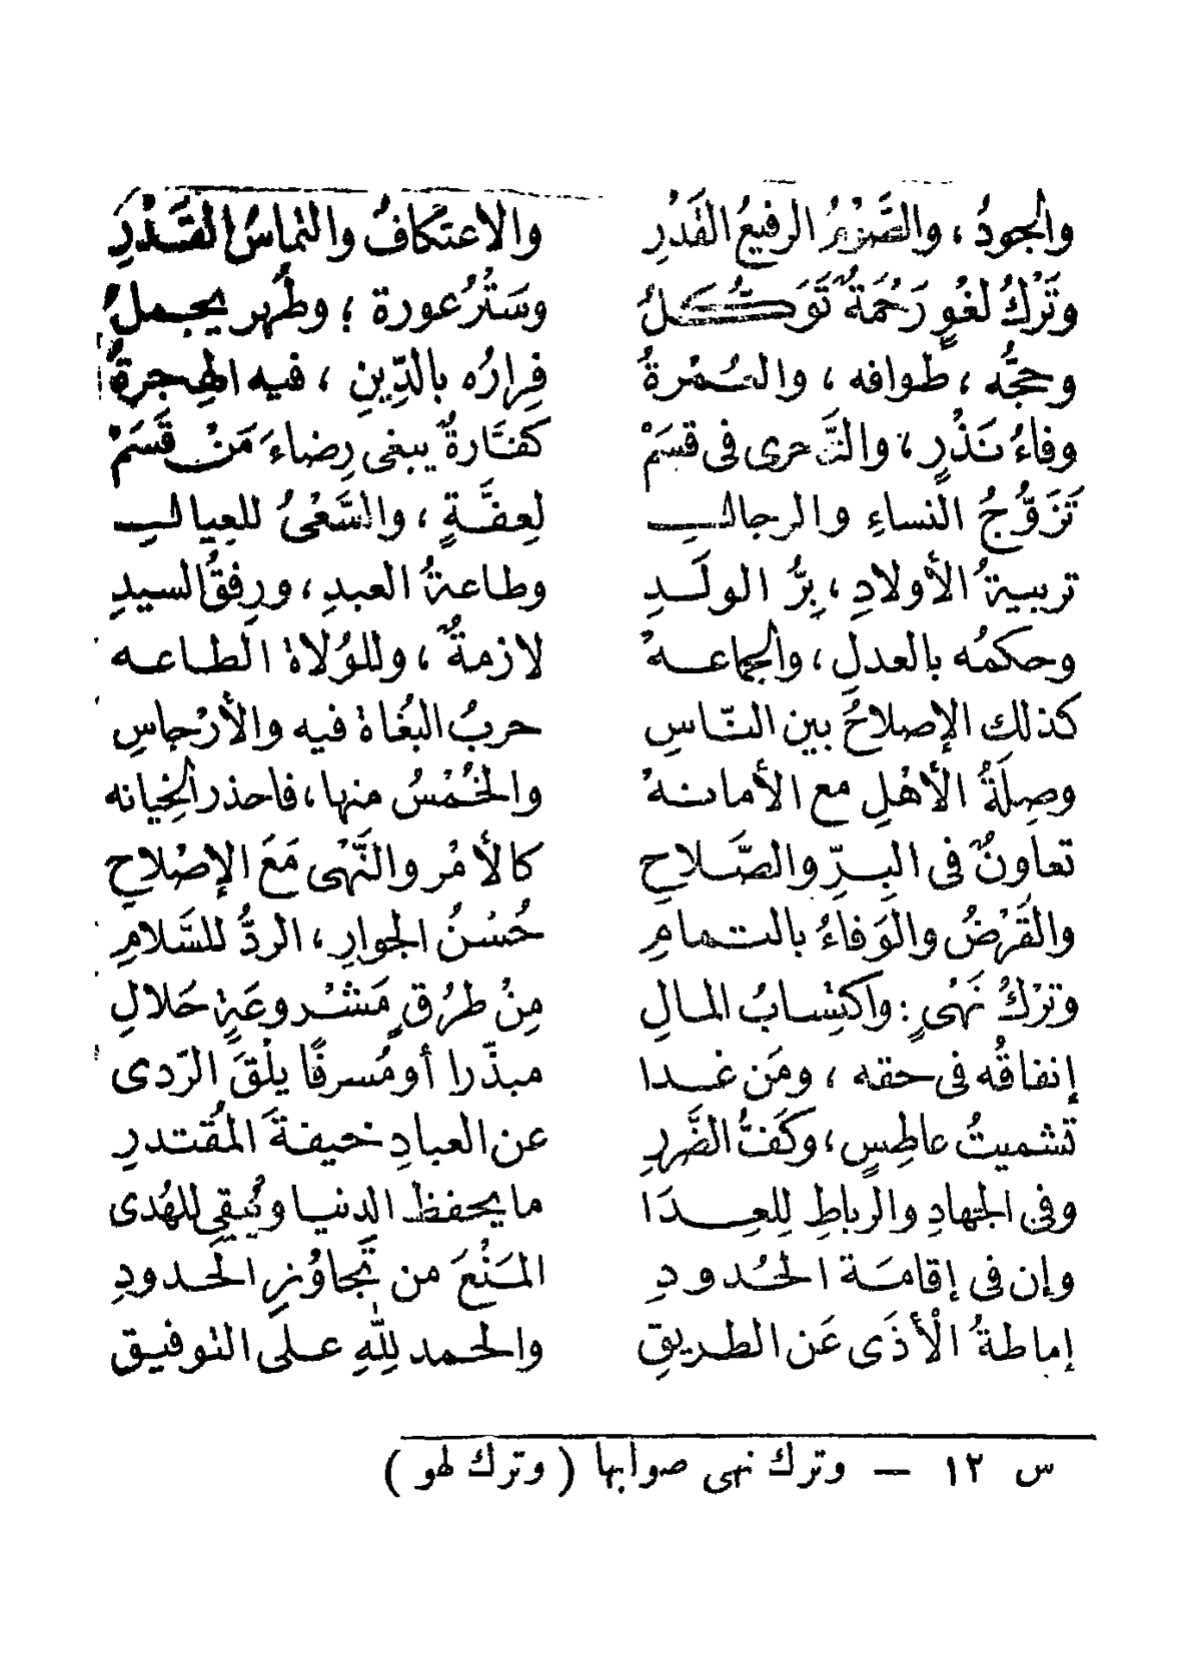 والجودُ ، والصَّوْمُ الرفيعُ القَدْرِ والاعتكافُ والتماسُ القَدْرِ
وتَرْكُ لغُوٍ رَحْمَةٌ تَوَكُّلُ وسَتْرُ عورة ؛ وطُهر يجملُ
وحجَّه ؛ طوافه ، والعُمْرةُ فِرارُه بالدِّينِ ، فيه الهِجرةُ
وفاءُ نَذْرٍ ، والتَّحرى فى قسَمْ كفَّارةٌ يبغى رِضاءَ مَنْ قَسَمْ
تَزَوُّجُ النساءِ والرجالِ لعِفَّةٍ ، والسَّعْىُ للعِيالِ
تربيةُ الأولادِ ، بِرُّ الولَدِ وطاعةُ العبدِ ، ورِفقُ السيدِ
وحكمُه بالعدلِ ، والجماعهْ لازمةٌ ، وللوُلاة الطاعه
كذلك الإصلاحُ بين النّاسِ حربُ البُغاة فيه والأرْجاسِ
وصِلَةُ الأهْلِ مع الأمانهْ والخُمْسُ منها ، فاحذر الخِيانه
تعاونٌ فى البِرِّ والصَّلاحِ كالأمْر والنَّهْى مَعَ الإصْلاحِ
والقَرْضُ والوَفاءُ بالتمامِ حُسْنُ الجوارِ ، الردُّ للسَّلامِ
وتَرْكُ نَهْىٍ : واكتِسابُ المالِ مِنْ طرُقٍ مَشْروعَةٍ حَلالِ
إنفاقُه فى حقه ، ومَن غدا مبذّرا أو مُسرفًا يلْقَ الرّدى
تشميتُ عاطِسٍ ، وكَفُّ الضَّررِ عن العبادِ خيفةَ المُقتدرِ
وفى الجهادِ والرباطِ لِلعِدَا ما يحفظ الدنيا ويُبقِى للهُدى
وإن فى إقامَة الحُدودِ المَنْعَ من تَجاوُزِ الحدودِ
إماطةُ الْأذَى عَن الطريقِ والحمد لِلّٰهِ على التوفيق
س ١٢ – وترك نهى صوابها ( وترك لهو )